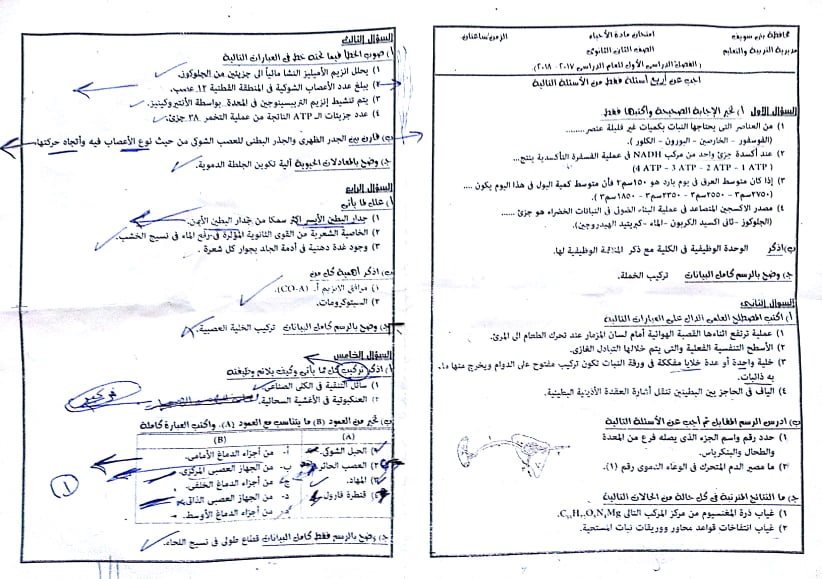 محافظة بنى سويف
مديرية التربية والتعليم
امتحان مادة الأحياء
الصف الثانى الثانوى
الزمن/ساعتان
(الفصل الدراسى الأول للعام الدراسى ٢٠١٧-٢٠١٨)
اجب عن أربع أسئلة فقط من الأسئلة التالية
السؤال الأول أ) تخير الإجابة الصحيحة واكتبها فقط
١) من العناصر التى يحتاجها النبات بكميات غير قليلة عنصر........
(الفوسفور - الخارصين - البورون - الكلور ).
٢) عند أكسدة جزئ واحد من مركب NADH فى عملية الفسفرة التأكسدية ينتج...
(1 ATP - 2 ATP - 3 ATP - 4 ATP)
٣) إذا كان متوسط العرق فى يوم بارد هو ١٥٠سم٣ فأن متوسط كمية البول فى هذا اليوم يكون ....
(١٨٥٠سم٣ - ٢٣٥٠سم٣ - ٢٥٥٠سم٣ - ٢٧٥٠سم٣)
٤) مصدر الاكسجين المتصاعد فى عملية البناء الضوئى فى النباتات الخضراء هو جزئ ......
(الجلوكوز -ثانى اكسيد الكربون -الماء -كبريتيد الهيدروجين).
ب) اذكر الوحدة الوظيفية فى الكلية مع ذكر الوظيفية لها.
ج) وضح بالرسم كامل البيانات تركيب الخملة.
السؤال الثانى
أ) اكتب المصطلح العلمى الدال على العبارات التالية
١) عملية ترتفع اثناءها القصبة الهوائية أمام لسان المزمار عند تحرك الطعام الى المرئ.
٢) الأسطح التنفسية الفعلية والتى يتم خلالها التبادل الغازى.
٣) خلية واحدة أو عدة خلايا مفككة فى ورقة النبات تكون تركيب مفتوح على الدوام ويخرج منها ماء
به ذائبات.
٤) الياف فى الحاجز بين البطينين تنقل أشارة العقدة الأذينية البطينية.
ب) ادرس الرسم المقابل ثم أجب عن الأسئلة التالية
١) حدد رقم واسم الجزء الذى يصله فرع من المعدة
والطحال والبنكرياس.
٢) ما مصير الدم المتحرك فى الوعاء الدموى رقم (١).
ج) ما النتائج المترتبة فى كل حالة من الحالات التالية
١) غياب ذرة المغنسيوم من مركز المركب التالى
٢) غياب انتفاخات قواعد محاور ووريقات نبات المستحية.
السؤال الثالث
أ) صوب الخطأ فيما تحته خط فى العبارات التالية
١) يحلل انزيم الأميليز النشا مائياً الى جزيئين من الجلوكوز.
٢) يبلغ عدد الأعصاب الشوكية فى المنطقة القطنية ١٢ عصب.
٣) يتم تنشيط إنزيم التربسينوجين فى المعدة بواسطة الأنتيروكينيز.
٤) عدد جزيئات الـ ATP الناتجة من عملية التخمر ٣٨ جزئ.
ب) قارن بين الجذر الظهرى والجذر البطنى للعصب الشوكى من حيث نوع الأعصاب فيه واتجاه حركتها.
ج) وضح بالمعادلات الحيوية آلية تكوين الجلطة الدموية.
السؤال الرابع
أ) علل لما يأتى
١) جدار البطين الأيسر أكثر سمكا من جدار البطين الأيمن.
٢) الخاصية الشعرية من القوى الثانوية المؤثرة فى رفع الماء فى نسيج الخشب.
٣) وجود غدة دهنية فى أدمة الجلد بجوار كل شعرة .
ب) اذكر أهمية كل من
١) مرافق الانزيم أ. (CO-A).
٢) السيتوكرومات.
ج) وضح بالرسم كامل البيانات تركيب الخلية العصبية.
السؤال الخامس
أ) اذكر تركيب كل مما يأتى وكيف يلائم وظيفته
١) سائل التنقية فى الكلى الصناعى.
٢) العنكبوتية فى الأغشية السحائية.
ب) تخير من العمود (B) ما يتناسب مع العمود (A). واكتب العبارة كاملة
(A) (B)
١) الحبل الشوكى. أ- من أجزاء الدماغ الأمامى.
٢) العصب الحائر. ب- من الجهاز العصبى المركزى.
٣) المهاد. ج- من أجزاء الدماغ الخلفى.
٤) قنطرة فارول. د- من الجهاز العصبى الذاتى.
من أجزاء الدماغ الأوسط.
ج) وضح بالرسم فقط كامل البيانات قطاع طولى فى نسيج اللحاء.
١